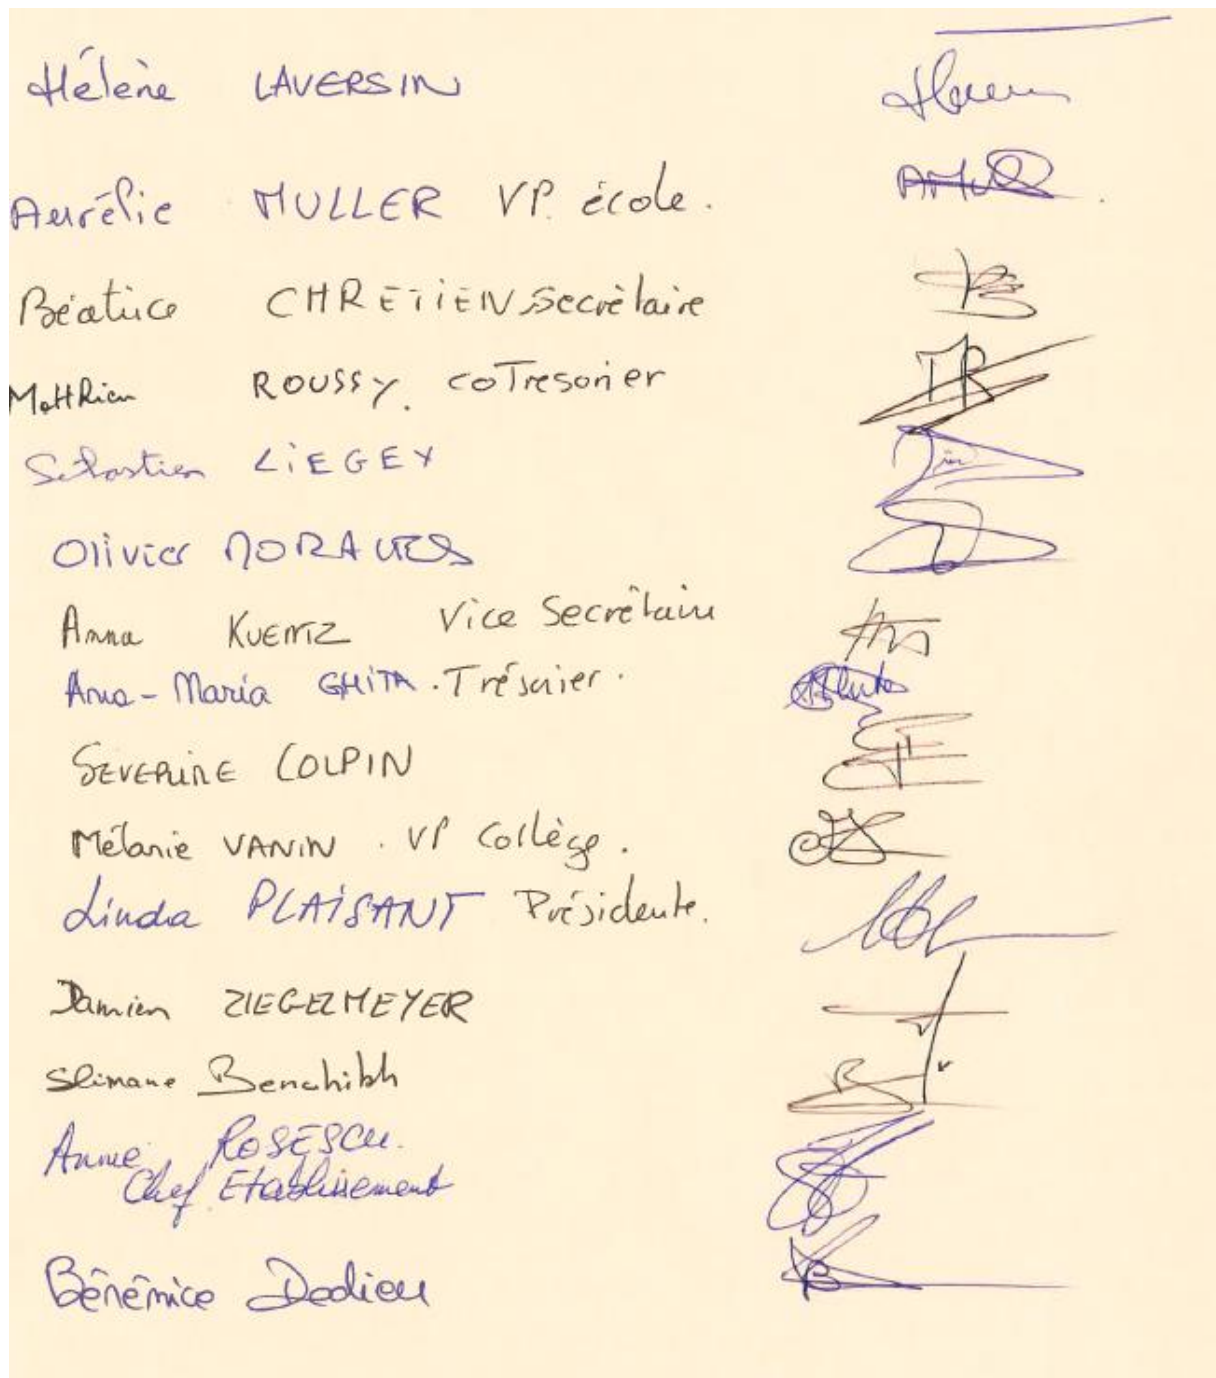 Hélène LAVERSIN
Aurélie MULLER VP. école.
Béatrice CHRETIEN Secrétaire
Matthieu ROUSSY. coTresorier
Sébastien LIEGEY
Olivier
Anna KUENTZ Vice Secrétaire
Ana-Maria GHITA. Trésorier.
SEVERINE COLPIN
Mélanie VANIN. VP Collège.
Linda PLAISANT Présidente.
Damien ZIEGELMEYER
Slimane
Anne ROSESCU.
Chef Etablissement
Dedieu